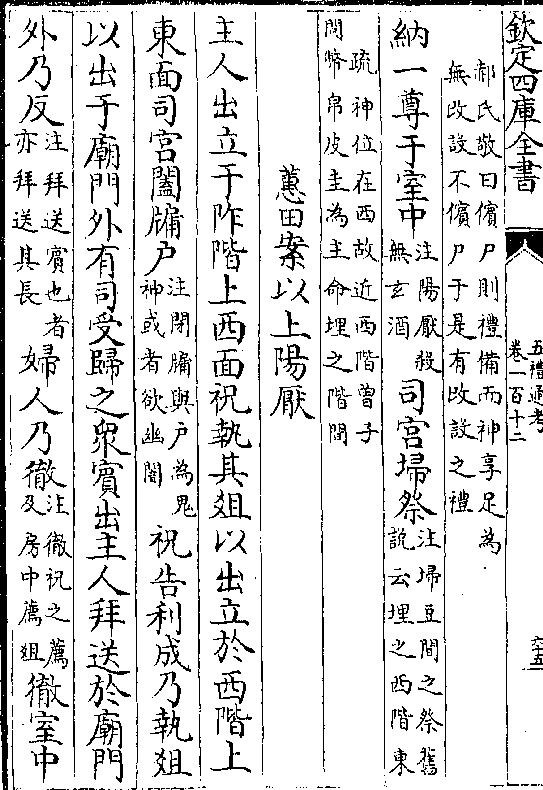 欽定四庫全書
五禮通考
卷一百十二
六五
郝氏敬曰儐尸則禮備而神享足為
無改設不儐尸于是有改設之禮
納一尊于室中注陽厭殺
無玄酒司宮埽祭注埽豆間之祭舊
說云埋之西階東
疏神位在西故近西階曾子
問幣帛皮圭為主命埋之階間
蕙田案以上陽厭
主人出立于阼階上西面祝執其俎以出立於西階上
東面司宮闔牖户注閉牖與户為鬼
神或者欲幽闇祝告利成乃執俎
以出于廟門外有司受歸之衆賓出主人拜送於廟門
外乃反注拜送賓也者
亦拜送其長婦人乃徹注徹祝之薦
及房中薦俎徹室中